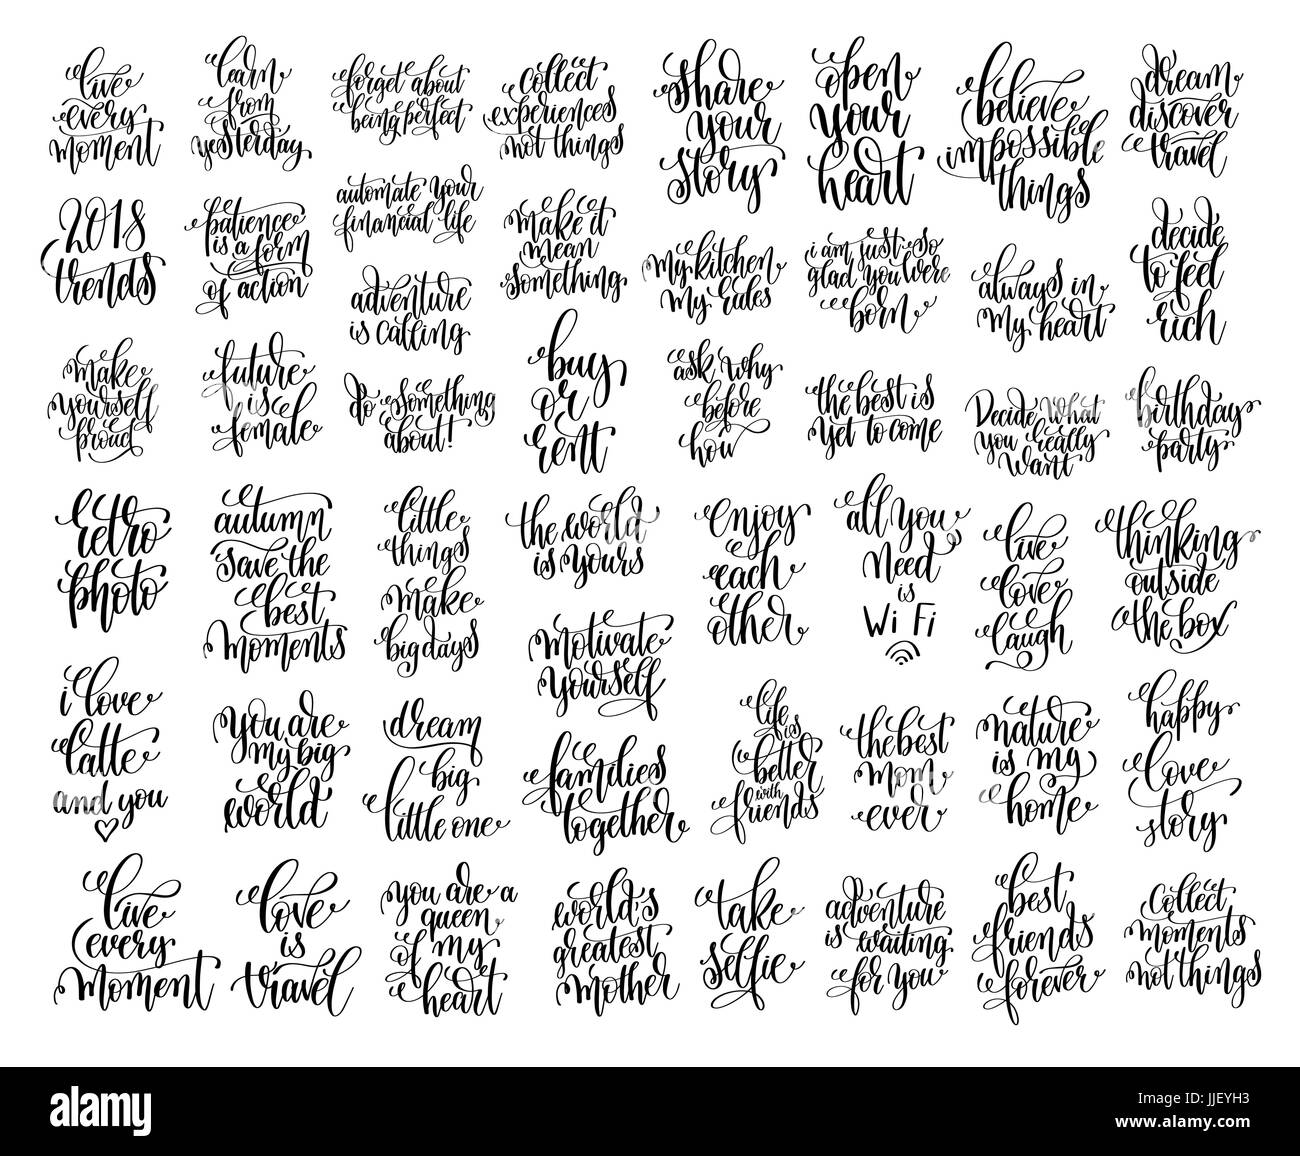 live
every
moment
learn
from
yesterday
forget about
being perfect
collect
experiences
not things
share
your
story
open
your
heart
believe
impossible
things
dream
discover
travel
2018
trends
patience
is a form
of action
automate your
financial life
make it
mean
something
my kitchen
my rules
i am just so
glad you were
born
always in
my heart
decide
to feel
rich
adventure
is calling
make
yourself
proud
future
is
female
do something
about!
buy
or
rent
ask why
before
how
the best is
yet to come
Decide what
you really
want
birthday
party
retro
photo
autumn
save the
best
moments
little
things
make
big days
the world
is yours
enjoy
each
other
all you
need
is
Wi Fi
live
love
laugh
thinking
outside
the box
motivate
yourself
i love
latte
and you
you are
my big
world
dream
big
little one
families
together
life is
better
with
friends
the best
mom
ever
nature
is my
home
happy
love
story
live
every
moment
love
is
travel
you are a
queen
of my
heart
world's
greatest
mother
take
selfie
adventure
is waiting
for you
best
friends
forever
collect
moments
not things
alamy stock photo
JJEYH3
www.alamy.com